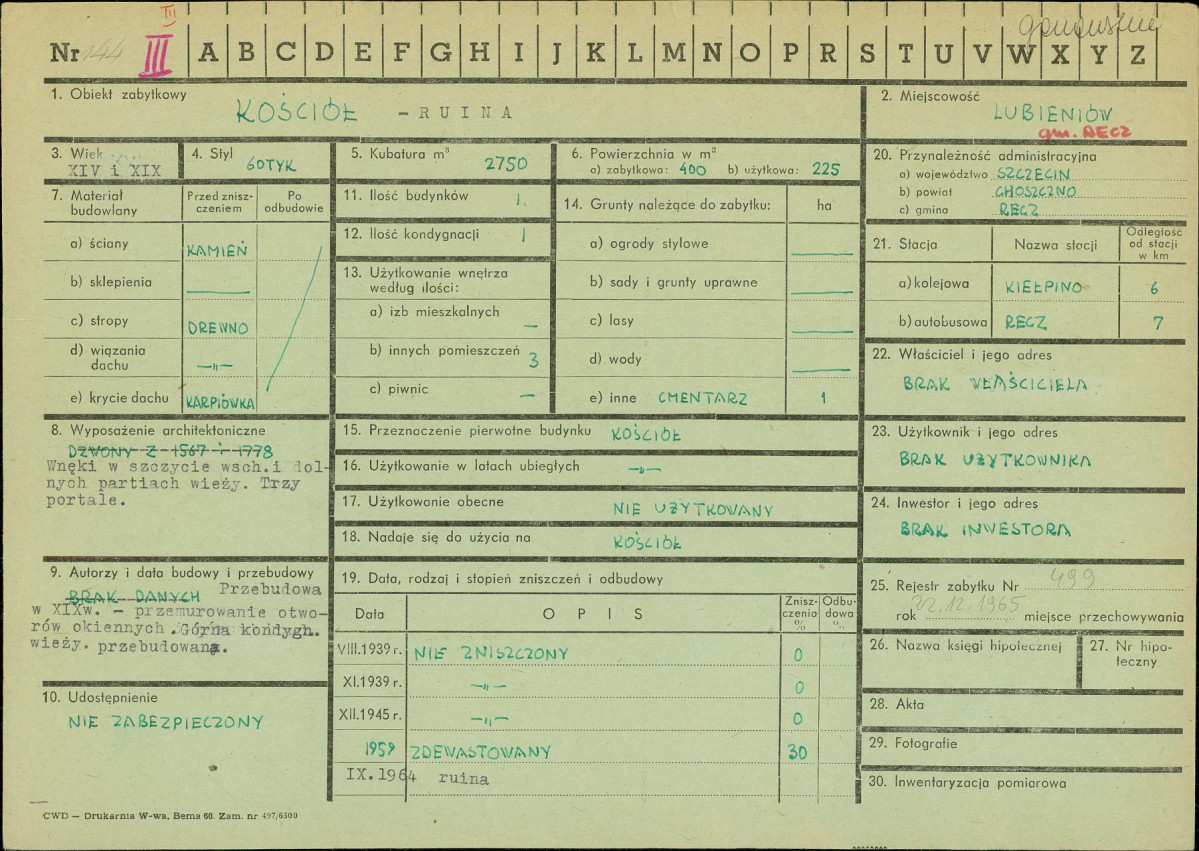 Nr 144 III III A B C D E F G H I J K L M N O P R S T U V W X Y Z
1. Obiekt zabytkowy
KOŚCIÓŁ – RUINA
2. Miejscowość
LUBIENIÓW
gm. RECZ
3. Wiek
XIV i XIX
4. Styl
GOTYK
5. Kubatura m³
2750
6. Powierzchnia w m²
a) zabytkowa: 400 b) użytkowa: 225
20. Przynależność administracyjna
a) województwo SZCZECIN
b) powiat CHOSZCZNO
c) gmina RECZ
7. Materiał budowlany
Przed zniszczeniem
Po odbudowie
a) ściany KAMIEŃ
b) sklepienia —
c) stropy DREWNO
d) wiązania dachu —„—
e) krycie dachu KARPIÓWKA
11. Ilość budynków 1.
12. Ilość kondygnacji 1
13. Użytkowanie wnętrza
według ilości:
a) izb mieszkalnych —
b) innych pomieszczeń 3
c) piwnic —
14. Grunty należące do zabytku: ha
a) ogrody stylowe —
b) sady i grunty uprawne —
c) lasy —
d) wody —
e) inne CMENTARZ 1
21. Stacja Nazwa stacji Odległość od stacji w km
a) kolejowa KIEŁPINO 6
b) autobusowa RECZ 7
22. Właściciel i jego adres
BRAK WŁAŚCICIELA
8. Wyposażenie architektoniczne
DZWONY Z 1567 i 1778
Wnęki w szczycie wsch. i dol-
nych partiach wieży. Trzy
portale.
15. Przeznaczenie pierwotne budynku KOŚCIÓŁ
16. Użytkowanie w latach ubiegłych —„—
17. Użytkowanie obecne NIE UŻYTKOWANY
18. Nadaje się do użycia na KOŚCIÓŁ
23. Użytkownik i jego adres
BRAK UŻYTKOWNIKA
24. Inwestor i jego adres
BRAK INWESTORA
9. Autorzy i data budowy i przebudowy
BRAK DANYCH Przebudowa
w XIXw. – przemurowanie otwo-
rów okiennych. Górna kondygn.
wieży. przebudowana.
10. Udostępnienie
NIE ZABEZPIECZONY
19. Data, rodzaj i stopień zniszczeń i odbudowy
Data OPIS Zniszczenia % Odbudowa %
VIII.1939 r. NIE ZNISZCZONY 0
XI.1939 r. —„— 0
XII.1945 r. —„— 0
1959 ZDEWASTOWANY 30
IX.1964 ruina
25. Rejestr zabytku Nr 499
rok 22.12.1965 miejsce przechowywania
26. Nazwa księgi hipotecznej
27. Nr hipoteczny
28. Akta
29. Fotografie
30. Inwentaryzacja pomiarowa
CWD — Drukarnia W-wa, Bema 60. Zam. nr 497/6500